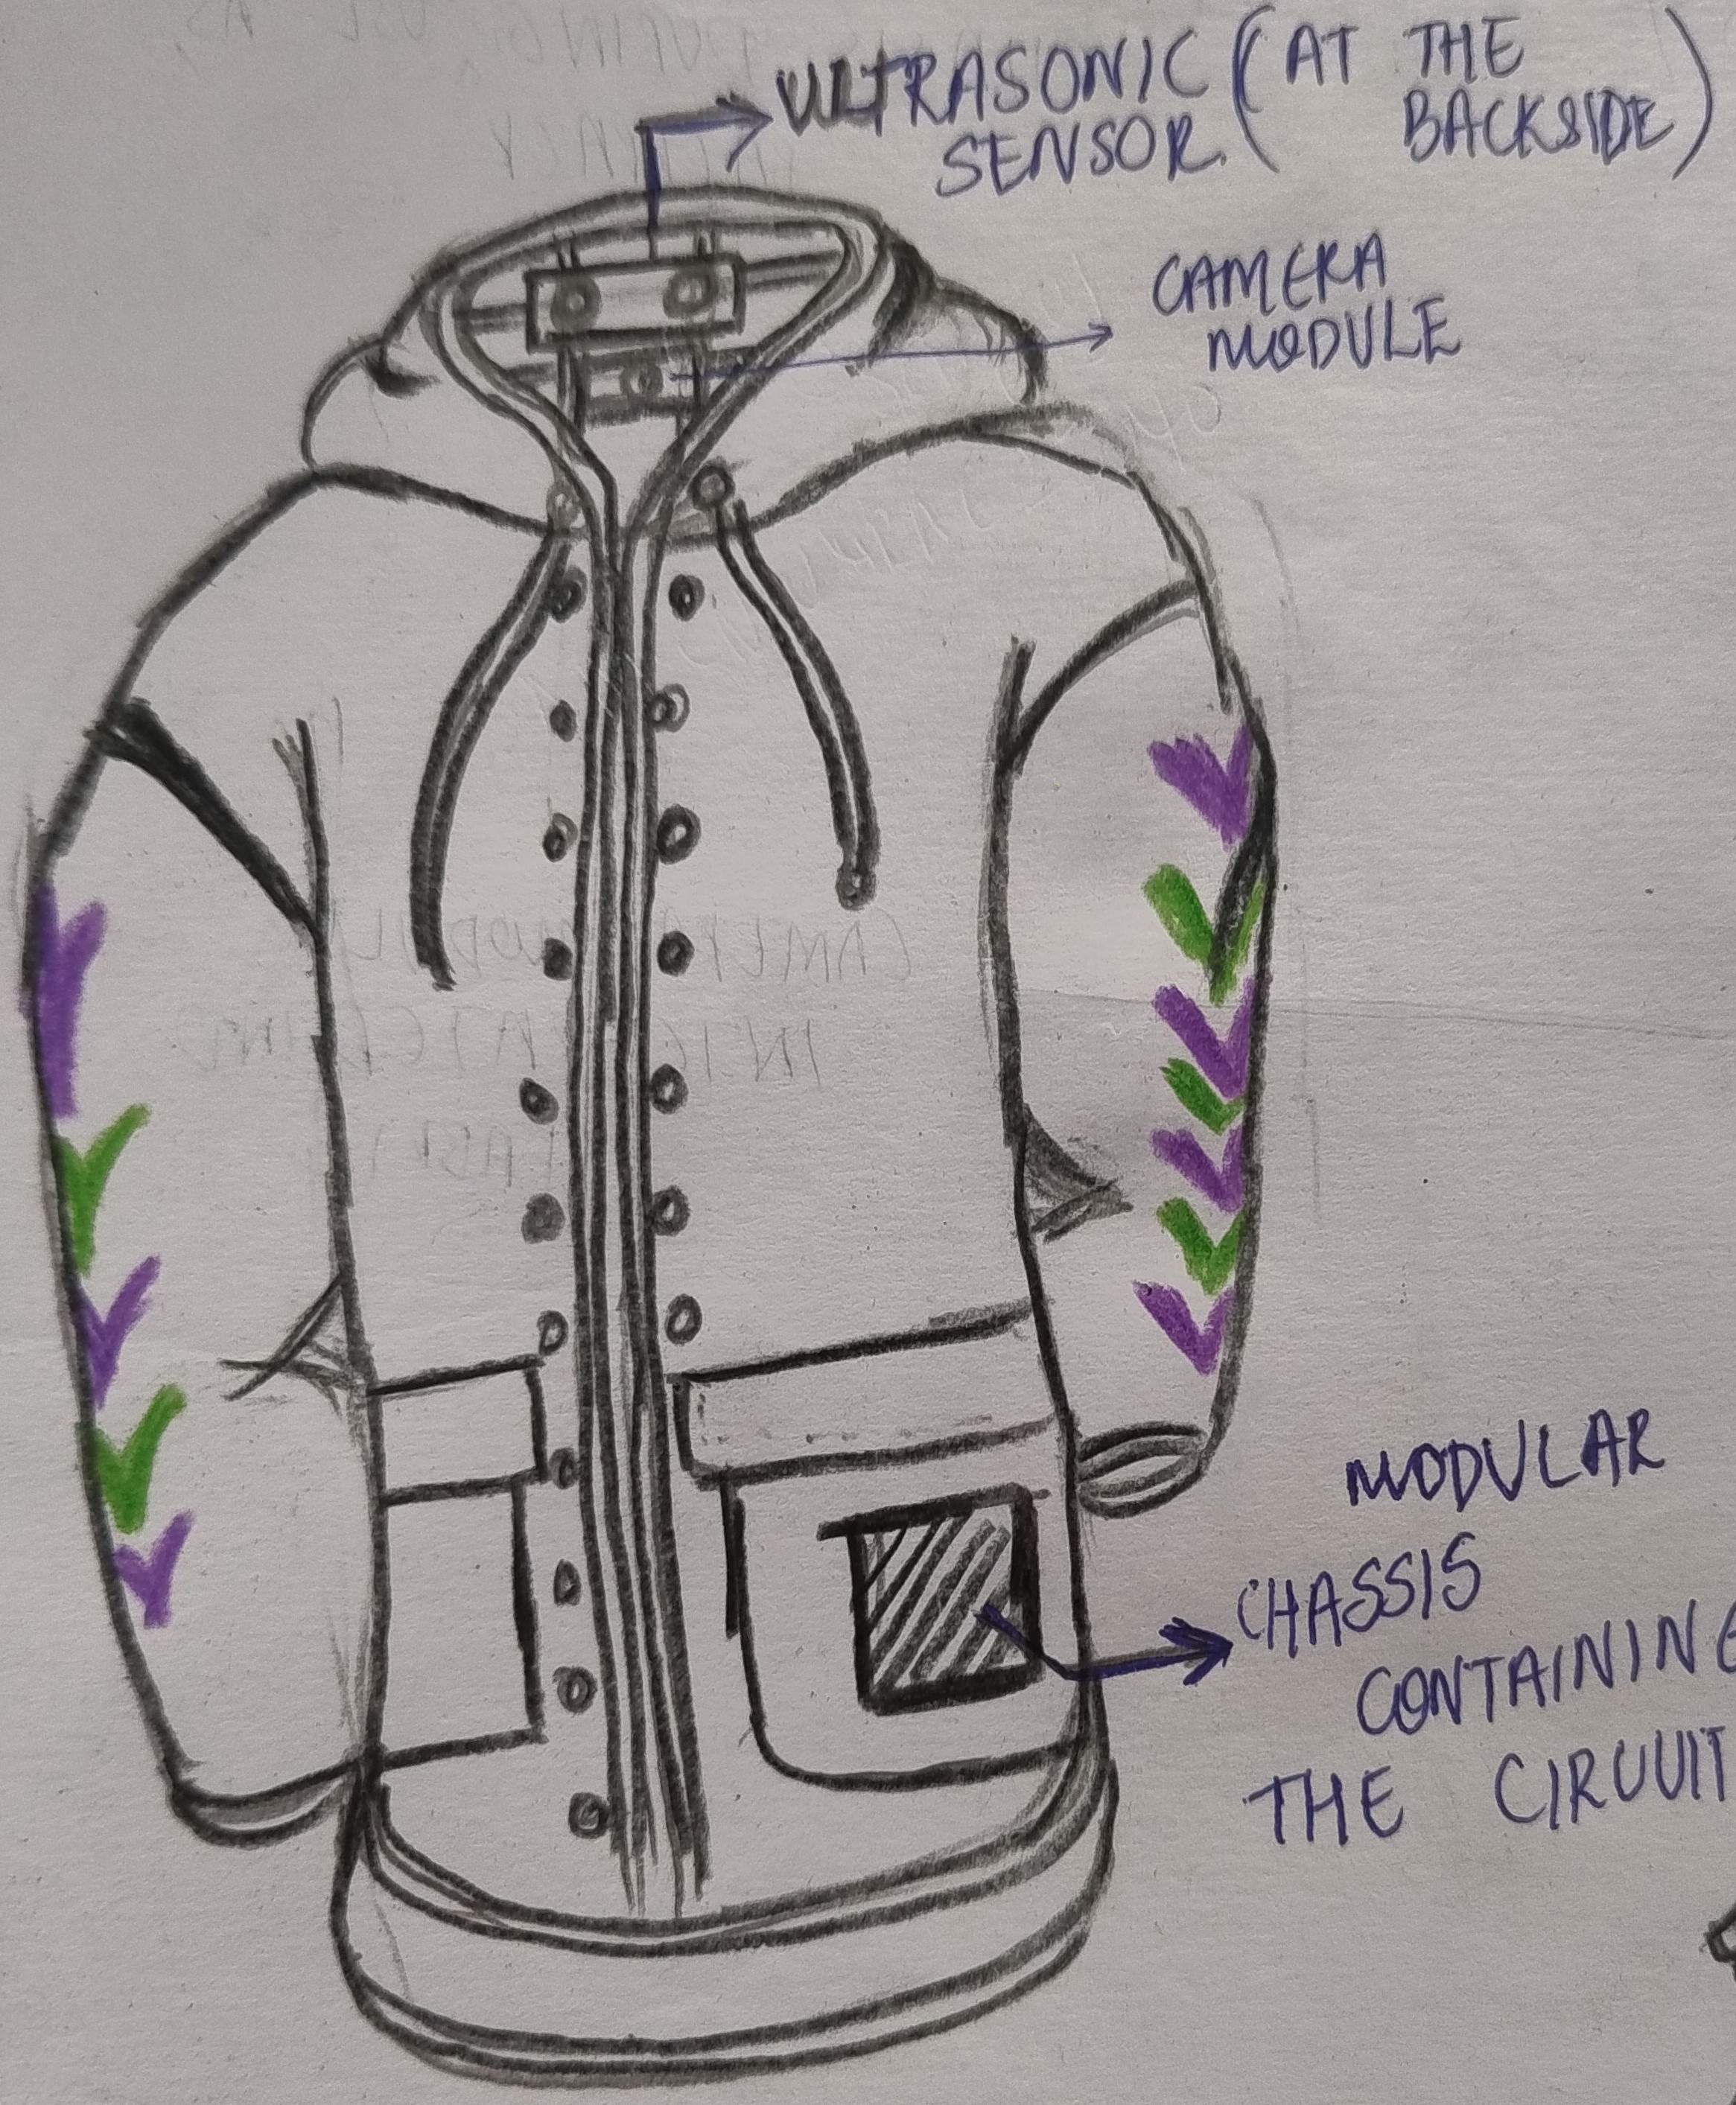 ULTRASONIC (AT THE
SENSOR. BACKSIDE)
CAMERA
MODULE
MODULAR
CHASSIS
CONTAINING
THE CIRUUIT